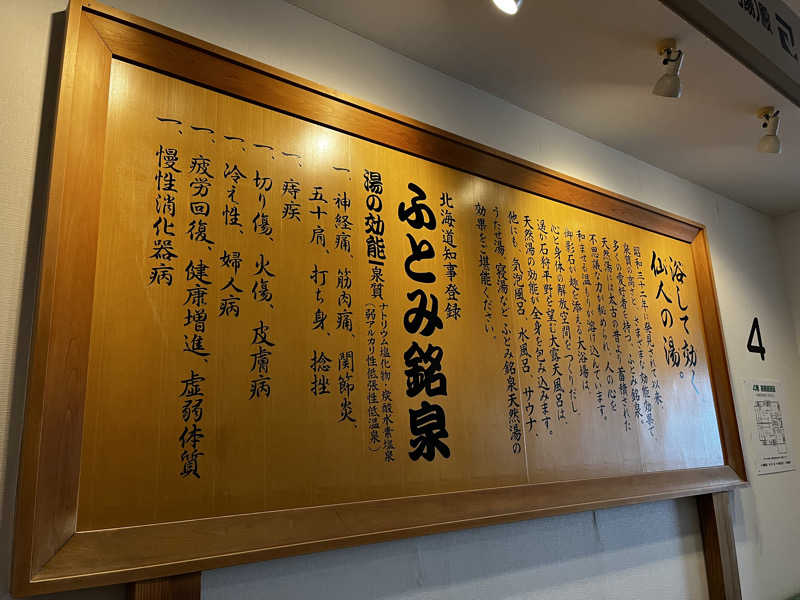 浴して効く
仙人の湯。
昭和三十二年に発見されて以来、
泉質の高さと、さまざまな効能効果で
多くの愛好者を持つ、ふとみ銘泉。
天然湯には太古の昔より蓄積された
不思議な力が秘められ、人の心を
和ませる温もりが溶け込んでいます。
御影石が趣を添える大浴場は、
心と身体の解放空間をつくりだし
遥か石狩平野を望む大露天風呂は、
天然湯の効能が全身を包み込みます。
他にも、気泡風呂、水風呂、サウナ、
うたせ湯、寝湯など、ふとみ銘泉天然湯の
効果をご堪能ください。
北海道知事登録
ふとみ銘泉
湯の効能
泉質
ナトリウム塩化物・炭酸水素塩泉
(弱アルカリ性低張性低温泉)
一、神経痛、筋肉痛、関節炎、
五十肩、打ち身、捻挫
一、痔疾
一、切り傷、火傷、皮膚病
一、冷え性、婦人病
一、疲労回復、健康増進、虚弱体質
一、慢性消化器病
4